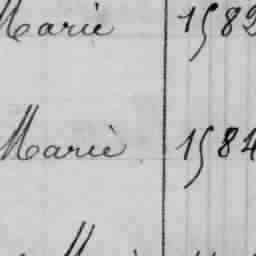 Marie 1582
Marie 1584